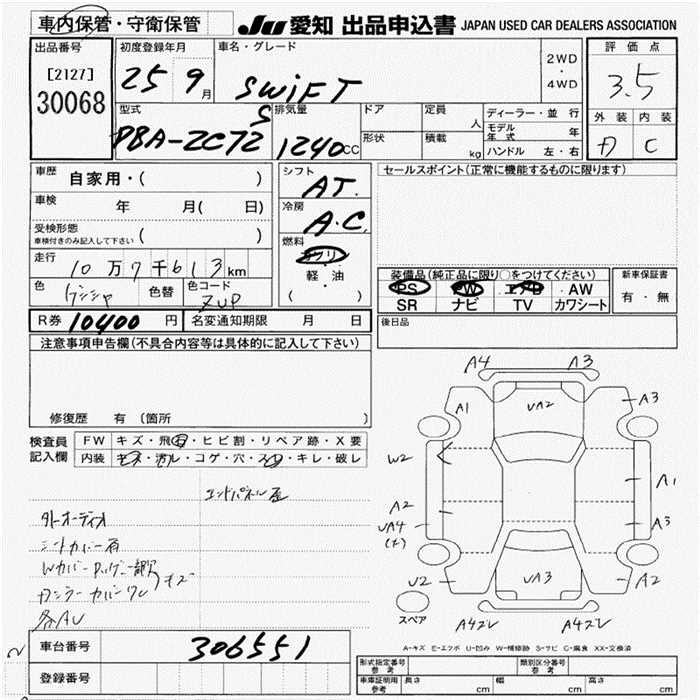 車内保管・守衛保管
JU 愛知 出品申込書 JAPAN USED CAR DEALERS ASSOCIATION
出品番号
[2127]
30068
初度登録年月
25 9月
車名・グレード
SWiFT
2WD
・
4WD
評価点
3.5
外装 内装
C
型式
DBA-ZC72S
排気量
1240cc
ドア
形状
定員
人
積載
kg
ディーラー・並行
モデル年式 年
ハンドル 左・右
車歴
自家用・( )
車検
年 月( 日)
受検形態
車検付きのみ記入して下さい ( )
走行
10万7千613km
色
色替
色コード
ZUP
シフト
AT.
冷房
A.C
燃料
ガソリ
軽・油
( )
R券 10400円
名変通知期限 月 日
セールスポイント(正常に機能するものに限ります)
装備品(純正品に限り○をつけてください)
PS PW エアB AW
SR ナビ TV カワシート
新車保証書
有・無
後日品
注意事項申告欄(不具合内容等は具体的に記入して下さい)
修復歴 有(箇所 )
検査員記入欄
FW キズ・飛石・ヒビ割・リペア跡・X要
内装 キズ・汚ル・コゲ・穴・スレ・キレ・破レ
シートカバー有
A4 A3
A1 UA2 A3
W2 A1
A2
UA4 A3
U2 UA3 A2
スペア
A4ズレ A4ズレ
A-キズ E-エクボ U-凹み W-補修跡 S-サビ C-腐食 XX-交換済
車台番号 306551
登録番号
形式指定番号 参考
類別区分番号
車庫証明用 参考 長さ cm 幅 cm 高さ cm